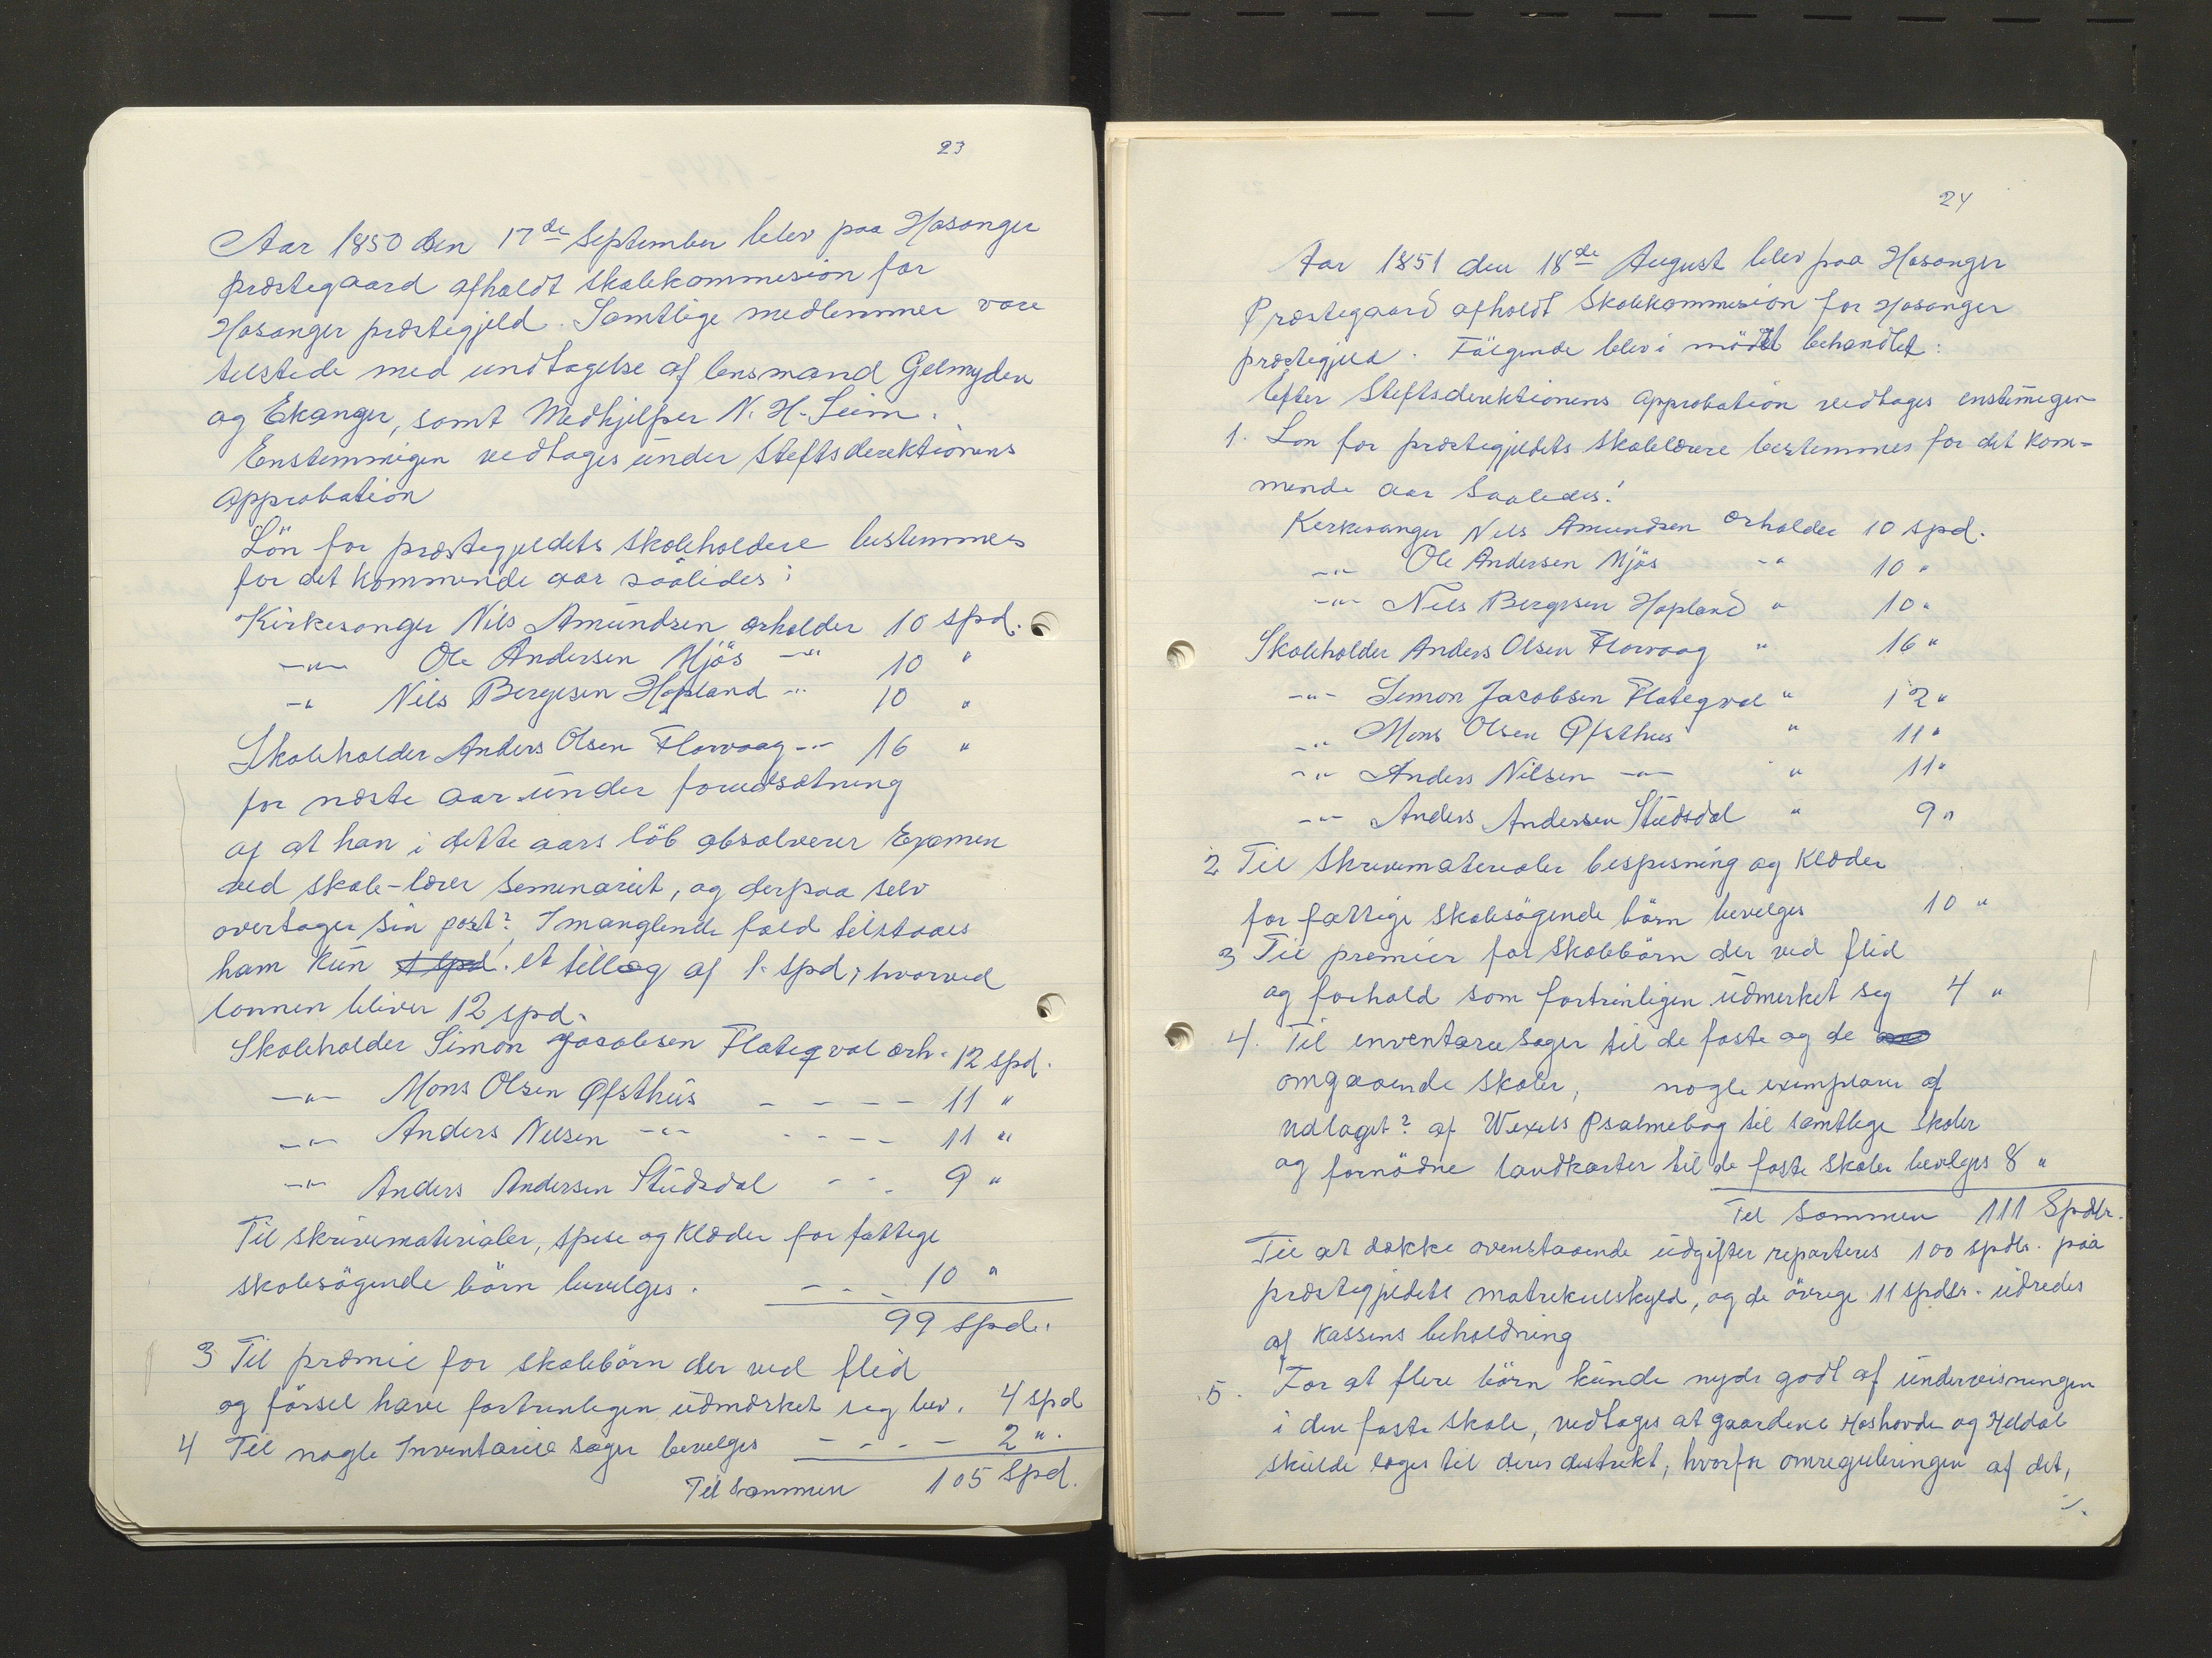 23
Aar 1850 den 17de September blev paa Hosanger
præstegaard afholdt skolekommesion for
Hosanger præstegjeld. Samtlige medlemmer vare
tilstede med undtagelse af lensmand Gelmyden
og Ekanger, samt Medhjelper N. H. Seim.
Enstemmigen vedtages under Steftsderektionens
Approbation
Lön for præstegjeldets skoleholdere bestemmes
for det kommende aar saaledes:
Kirkesanger Nils Amundsen erholder 10 spd.
-"- Ole Andersen Mjös -" 10 "
-" Nils Bergesen Hopland -" 10 "
Skoleholder Anders Olsen Florvaag -"- 16 "
for næste aar under forudsætning
af at han i dette aars löb absolverer Examen
ved skole-lærer Seminariet, og derpaa selv
overtager sin post? I manglende fald tilstaaes
ham kun 1 spd. et tillæg af 1. spd, hvorved
lonnen bliver 12 spd.
Skoleholder Simon Jacobsen Flateqval erh. 12 spd.
-"- Mons Olsen Øfsthus - - - - 11 "
-"- Anders Nilsen -"- - - - - 11 "
-"- Anders Andersen Studsdal - - - 9 "
Til skrivematerialer, spise og klæder for fattige
skolesögende börn bevelges. - - - 10 "
99 spd.
3 Til præmie for skolebörn der ved flid
og försel have fortrinligen udmærket seg bev. 4 spd
4 Til nogle Inventarie sager bevelges - - - - 2 ".
Til sammen 105 spd.
24
Aar 1851 den 18de August blev paa Hosanger
Præstegaard afholdt Skolekommesion for Hosanger
præstegjeld. Fölgende blev i mödet behandlet:
Efter Steftsderektionens approbation vedtages enstemigen
1. Lon for præstegjeldets skolelærere bestemmes for det kom-
mende aar saaledes:
Kerkesanger Nels Amundsen erholder 10 spd.
-"- Ole Andersen Mjös -" 10 "
-"- Nels Bergesen Hopland " 10 "
Skoleholder Anders Olsen Florvaag " 16 "
-"- Semon Jacobsen Flateqval " 12 "
-"- Mons Olsen Øfsthus " 11 "
-"- Anders Nilsen -"- " 11 "
-"- Anders Andersen Studsdal " 9 "
2 Til Skrivematerialer bespisning og klæder
for fattige skolesögende börn bevelges 10 "
3 Til premier for Skolebörn der ved flid
og forhold som fortrinligen udmerket seg 4 "
4. Til enventarie sager til de faste og de
omgaaende skoler, nogle exemplarer af
udlaget? af Wexels Psalmebog til samtlige skoler
og fornödne landkarter til de faste skoler bevelges 8 "
Tel sammen 111 Spdlr.
Til at dække ovenstaaende udgifter reparteres 100 spdlr. paa
præstegjeldets matrekulskyld, og de övrige 11 spdlr. udredes
af kassens beholdning
5. For at flere börn kunde nyde godt af undervisningen
i den faste skole, vedtages at gaardene Hoshovde og Heldal
skulde lages til deres destrekt, hvorfor omreguleringen af det,
./.